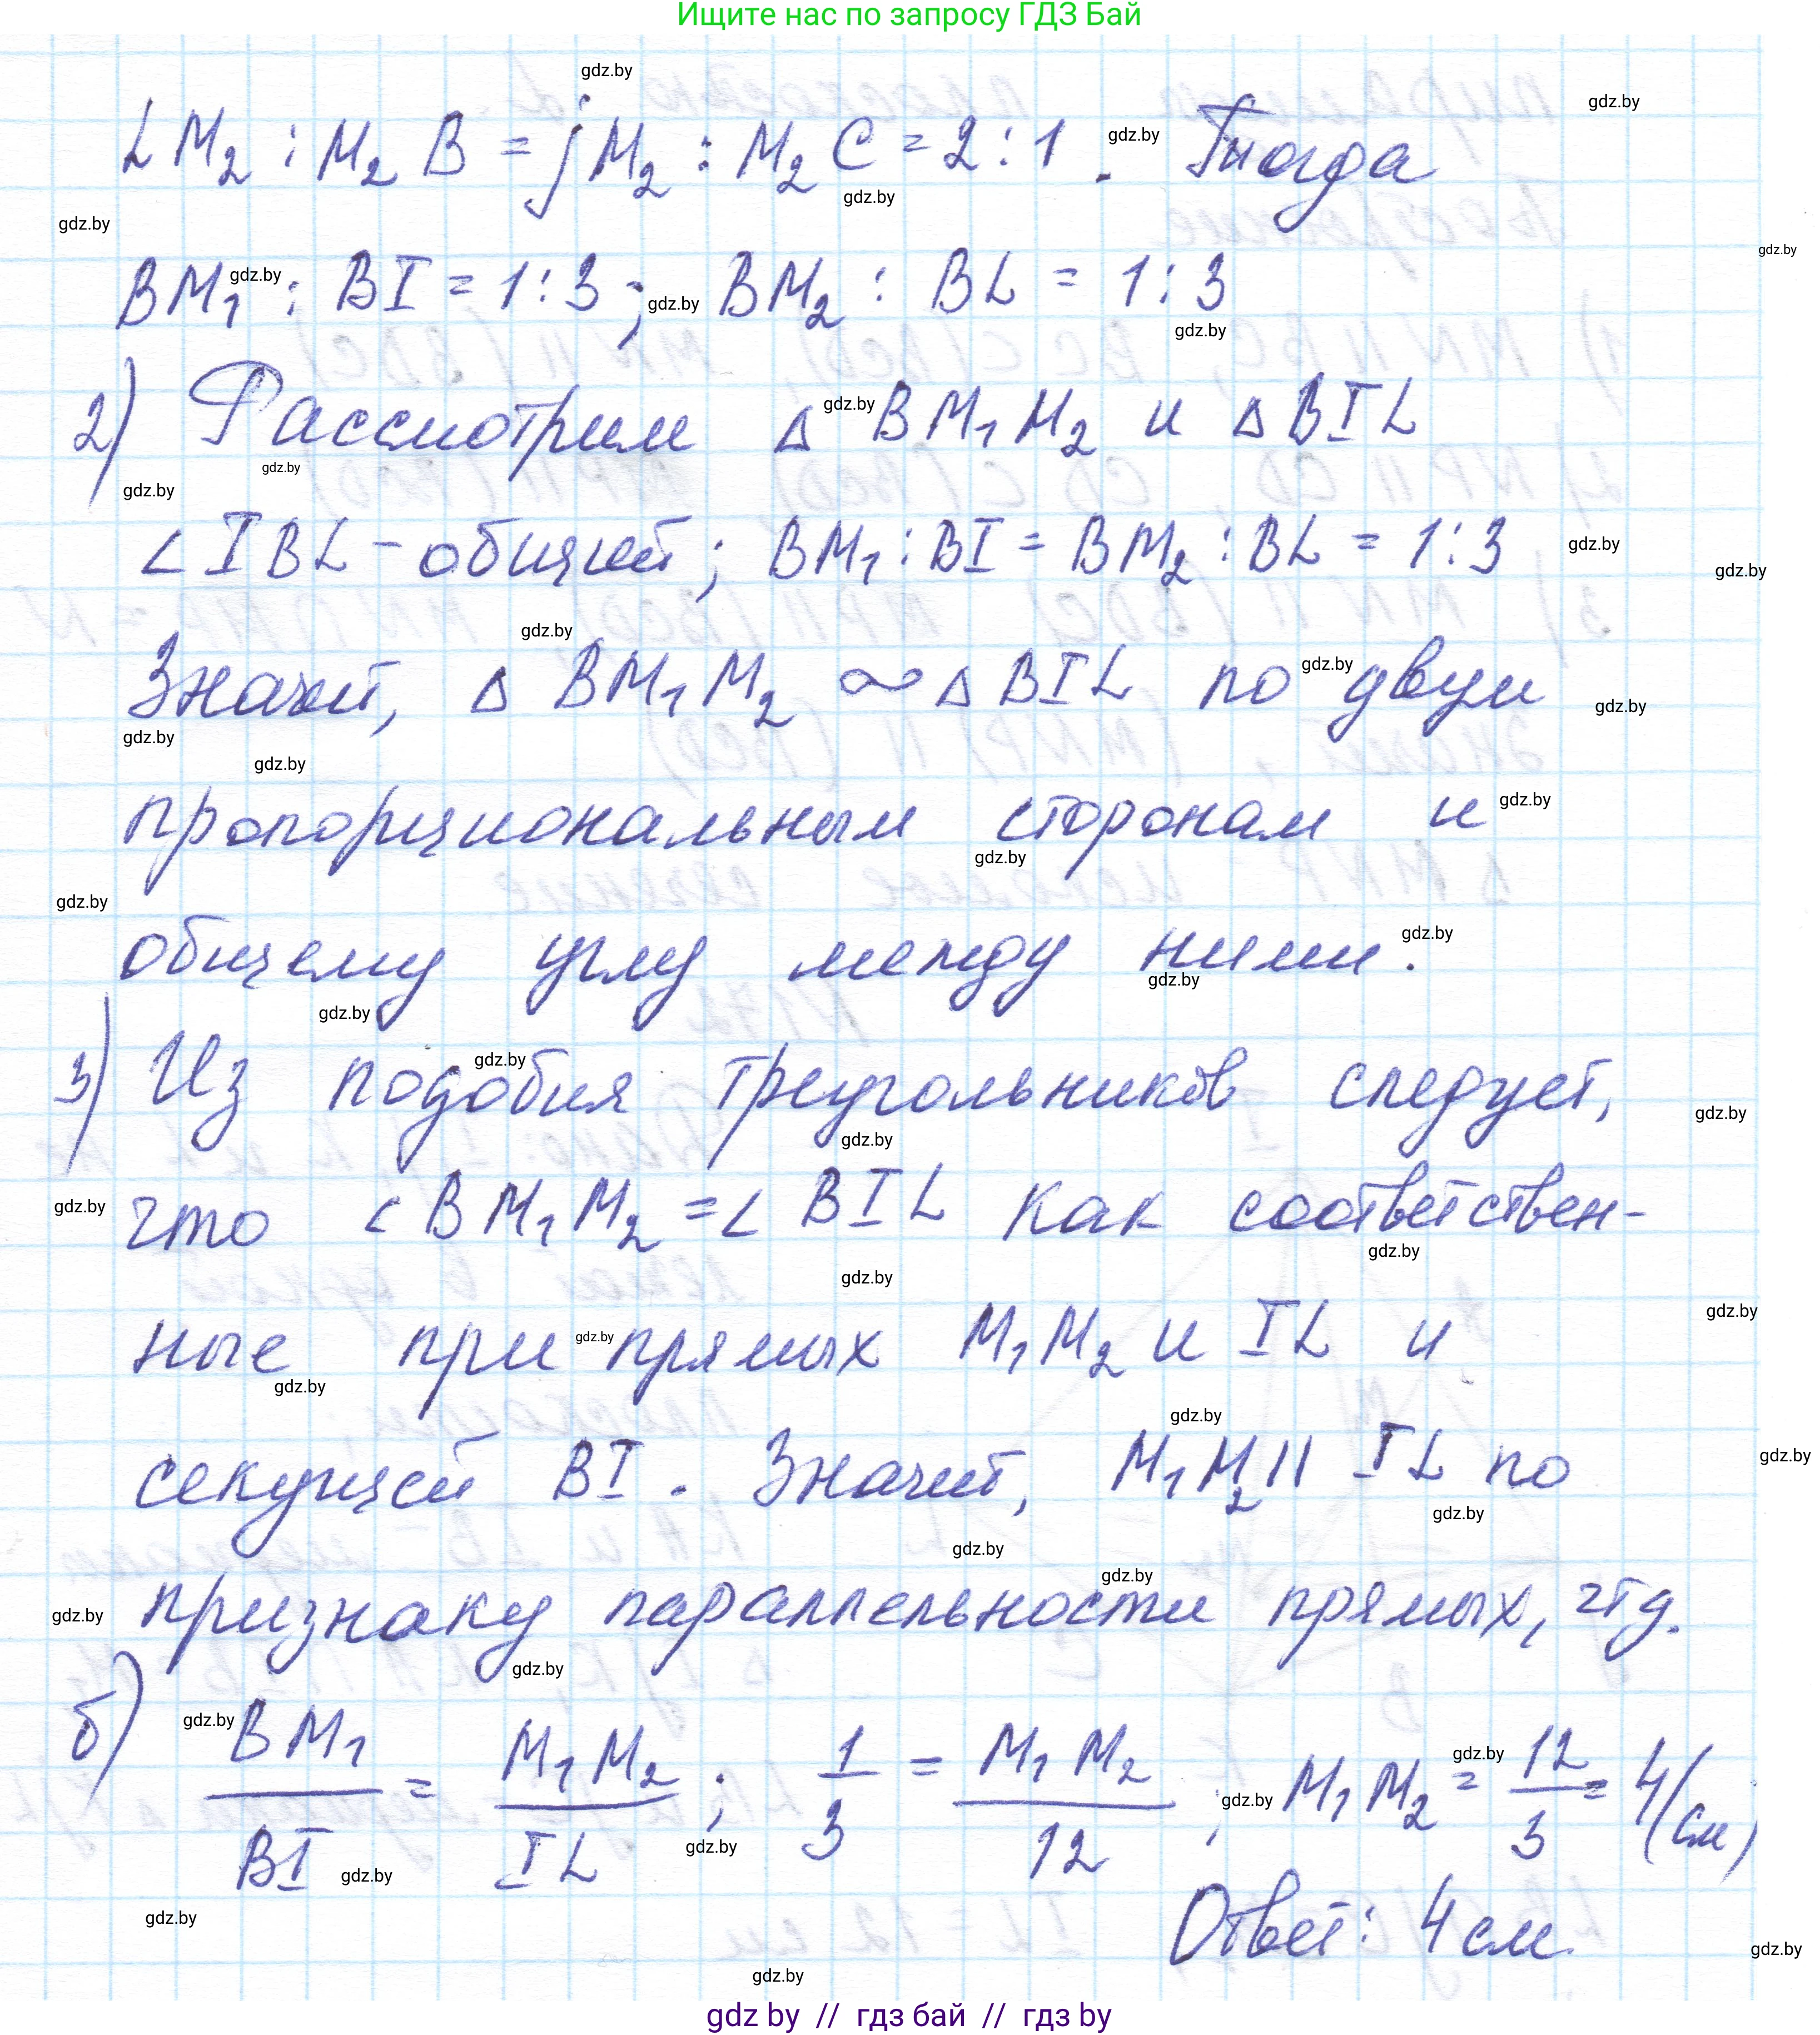 Ищите нас по запросу ГДЗ Бай
LM₂ : M₂B = jM₂ : M₂C = 2:1 . Тогда
BM₁ : BI = 1:3 ; BM₂ : BL = 1:3
2) Рассмотрим Δ BM₁M₂ и Δ BIL
∠ IBL - общий ; BM₁ : BI = BM₂ : BL = 1:3
Значит, Δ BM₁M₂ ∾ Δ BIL по двум
пропорциональным сторонам и
общему углу между ними.
3) Из подобия треугольников следует,
что ∠ BM₁M₂ = ∠ BIL как соответствен-
ные при прямых M₁M₂ и IL и
секущей BI . Значит, M₁M₂ || IL по
признаку параллельности прямых, чтд.
б) BM₁/BI = M₁M₂/IL ; 1/3 = M₁M₂/12 ; M₁M₂ = 12/3 = 4 (см)
Ответ: 4 см.
gdz by // гдз бай // гдз by